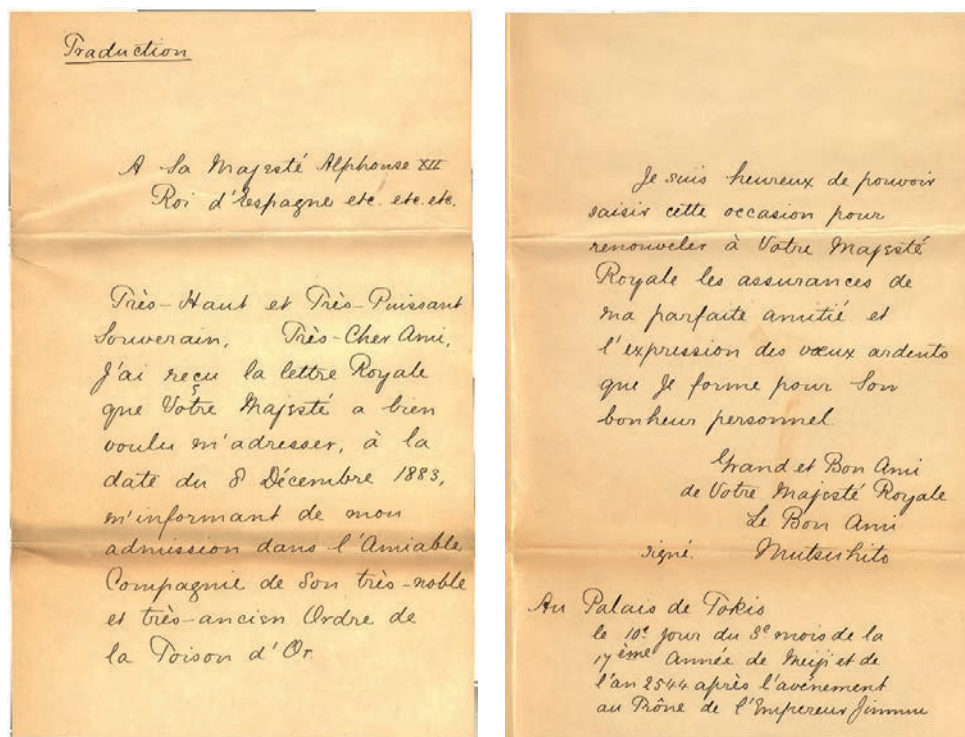 Traduction
A Sa Majesté Alphonse XII
Roi d'Espagne etc. etc. etc.
Très-Haut et Très-Puissant
Souverain, Très-Cher Ami,
J'ai reçu la lettre Royale
que Votre Majesté a bien
voulu m'adresser, à la
date du 8 Décembre 1883,
m'informant de mon
admission dans l'Amiable
Compagnie de Son très-noble
et très-ancien Ordre de
la Toison d'Or.
Je suis heureux de pouvoir
saisir cette occasion pour
renouveler à Votre Majesté
Royale les assurances de
ma parfaite amitié et
l'expression des vœux ardents
que Je forme pour Son
bonheur personnel.
Grand et Bon Ami
de Votre Majesté Royale
Le Bon Ami
signé. Mutsuhito
Au Palais de Tokio
le 10e jour du 3e mois de la
17ème Année de Meiji et de
l'an 2544 après l'avénement
au Trône de l'Empereur Jimmu